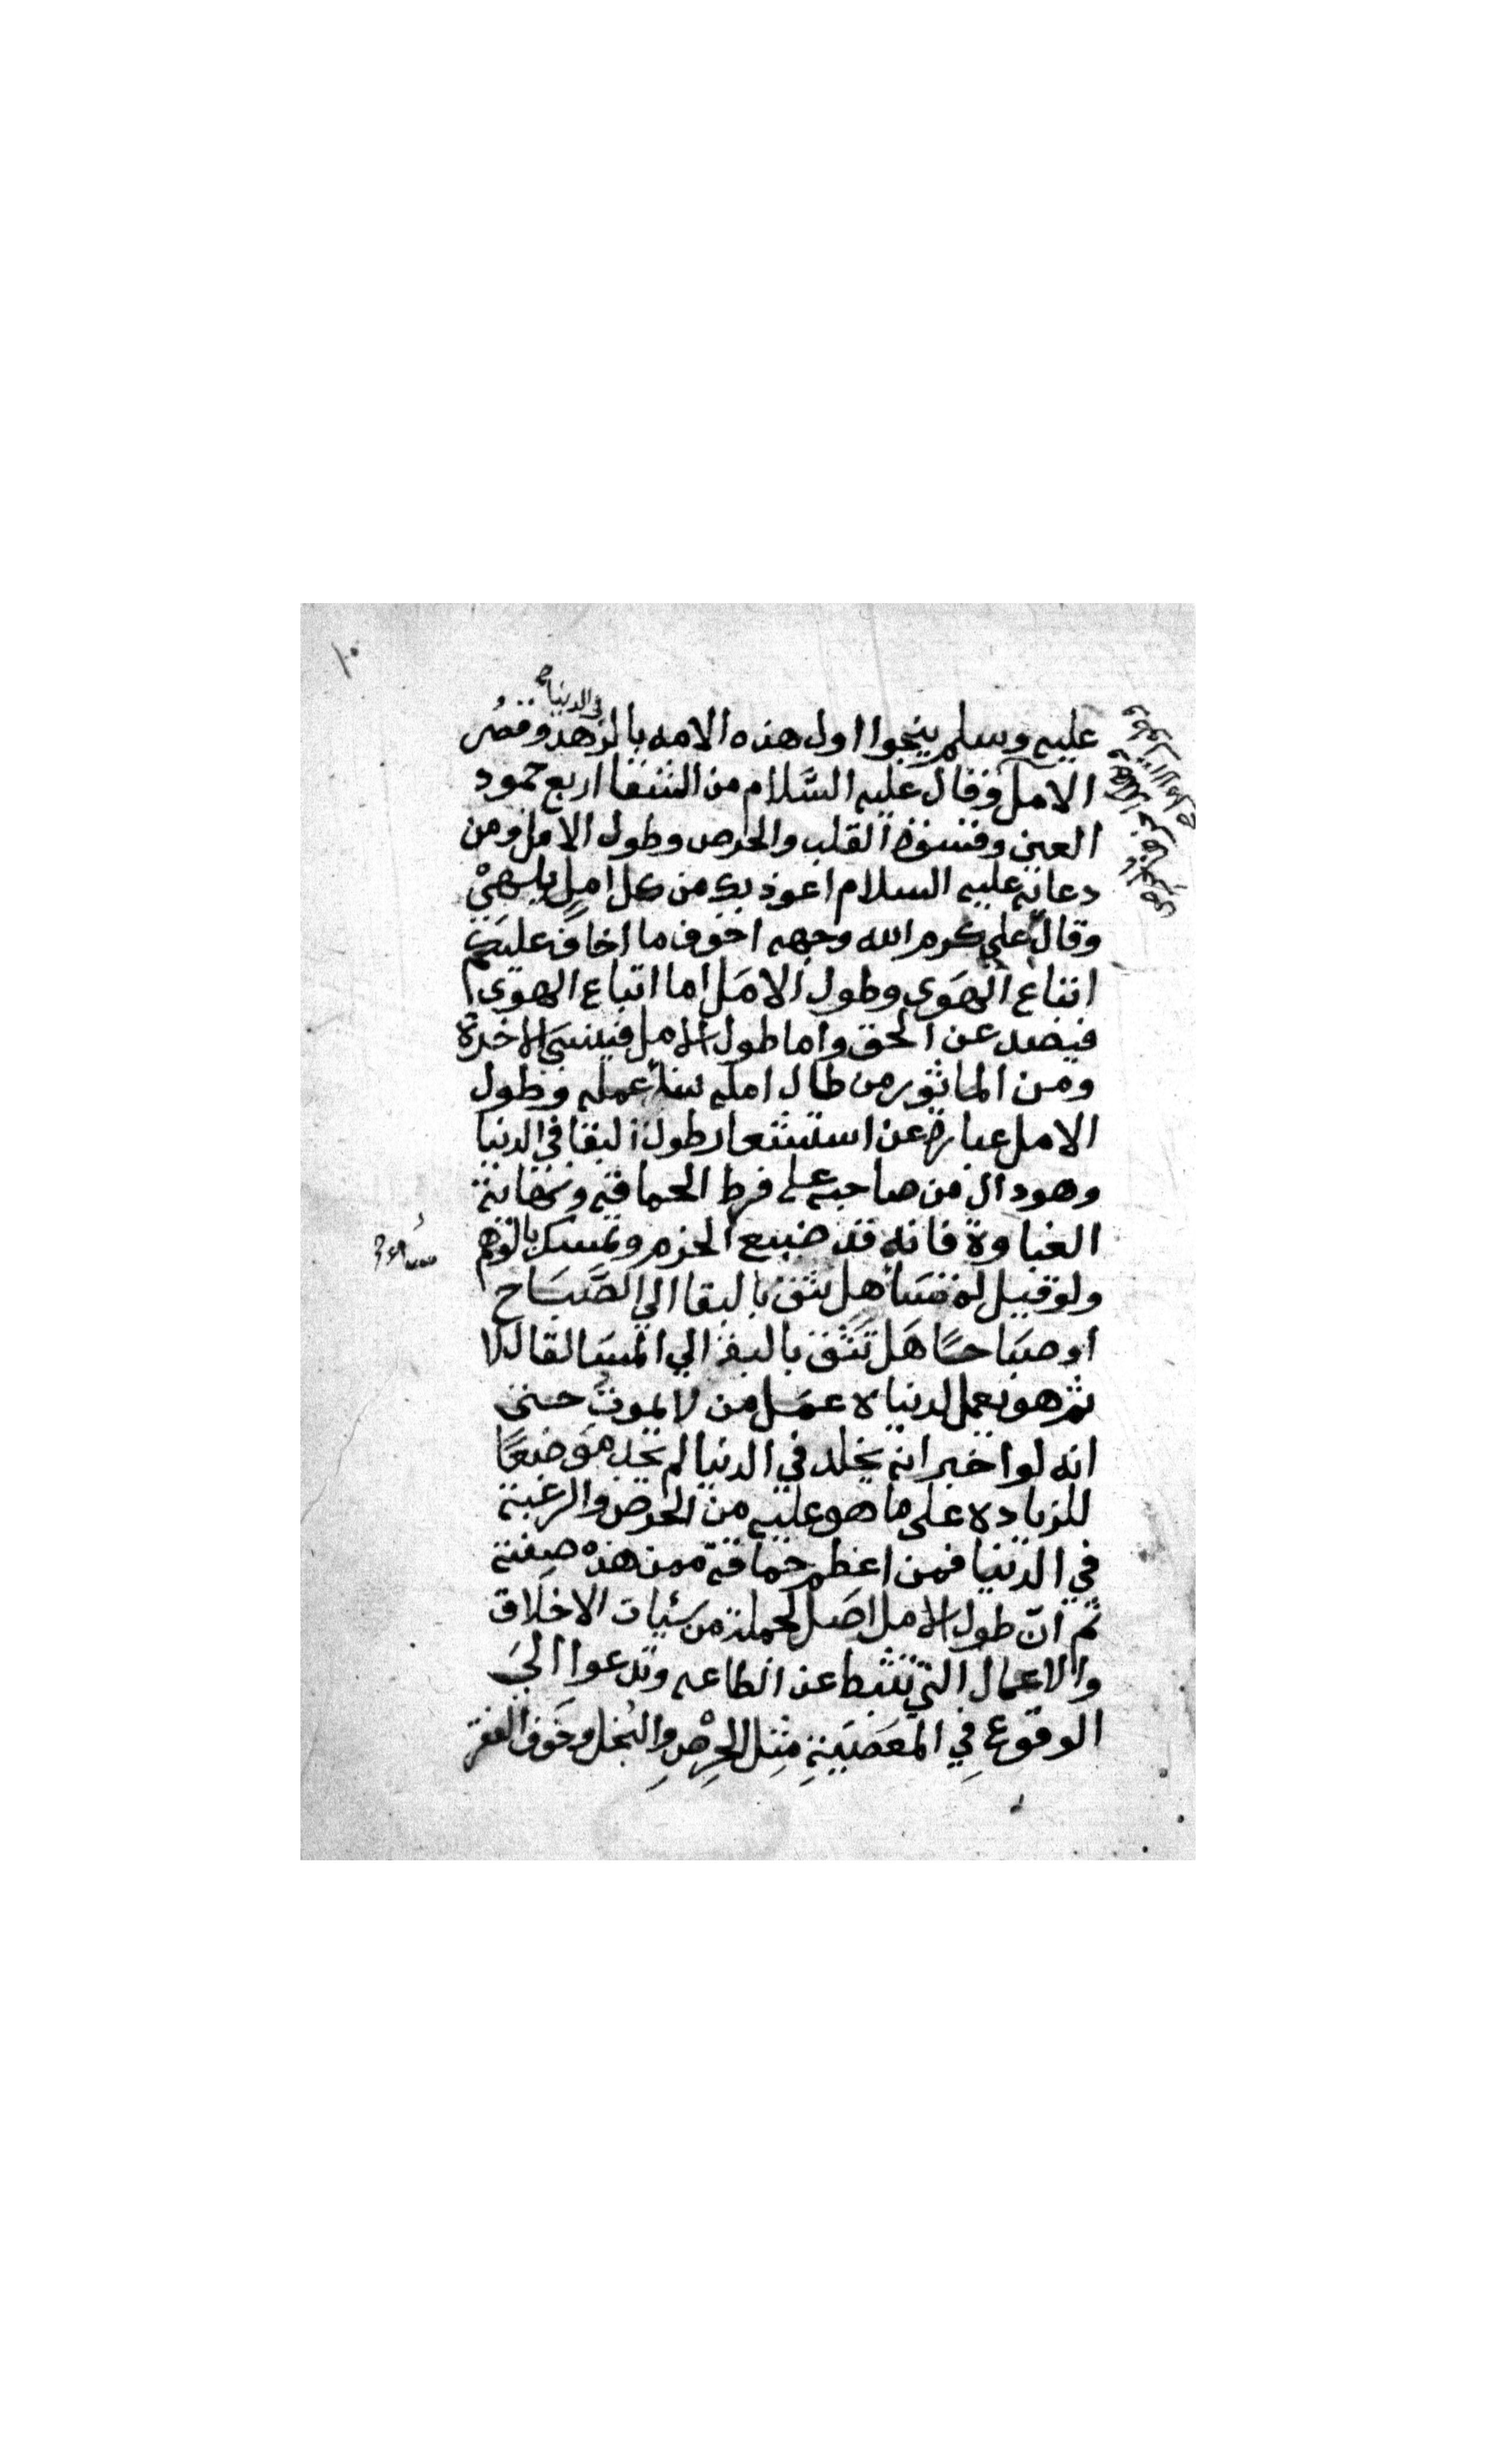 ١٠
في الدنيا
عليه وسلم ينجوا اول هذه الامه بالزهد وقصر
الامل وقال عليه السَّلام من الشقا اربع جمود
العين وقسوة القلب والحرص وطول الامل ومن
دعائه عليه السلام اعوذ بك من كل امل يلهيْ
وقال علي كرم الله وجهه اخوف ما اخاف عليكم
اتباع الهَوي وطول الامَل اما اتباع الهوي
فيصد عن الحق واما طول الامل فينسي الاخرة
ومن الماثور من طال امله ساء عمله وطول
الامل عبارة عن استشعار طول البقا في الدنيا
وهو دال من صاحبه على فرط الحماقه ونهاية
الغباوة فانه قد ضيع الحزم وتمسك بالوهم
ولو قيل له مسَا هل تثق بالبقا الي الصَّبَاح
او صبَاحًا هَل تثق بالبقا الي المسَا لقال لا
ثم هو يعمل لدنياه عمَل من لا يموت حتى
انه لو اخبر انه يخلد في الدنيا لم يجد موضعًا
للزياده على ما هو عليه من الحرص والرغبة
في الدنيا فمن اعظم حماقة ممن هذه صفته
ثم انّ طول الامل اصَل لجملة من سَئيات الاخلاق
والاعمال التي تثبط عن الطاعه وتدعوا الي
الوقوع فِي المعَصَيةِ مِثِل الحِرْصِ والبُخل وخَوف الفقر